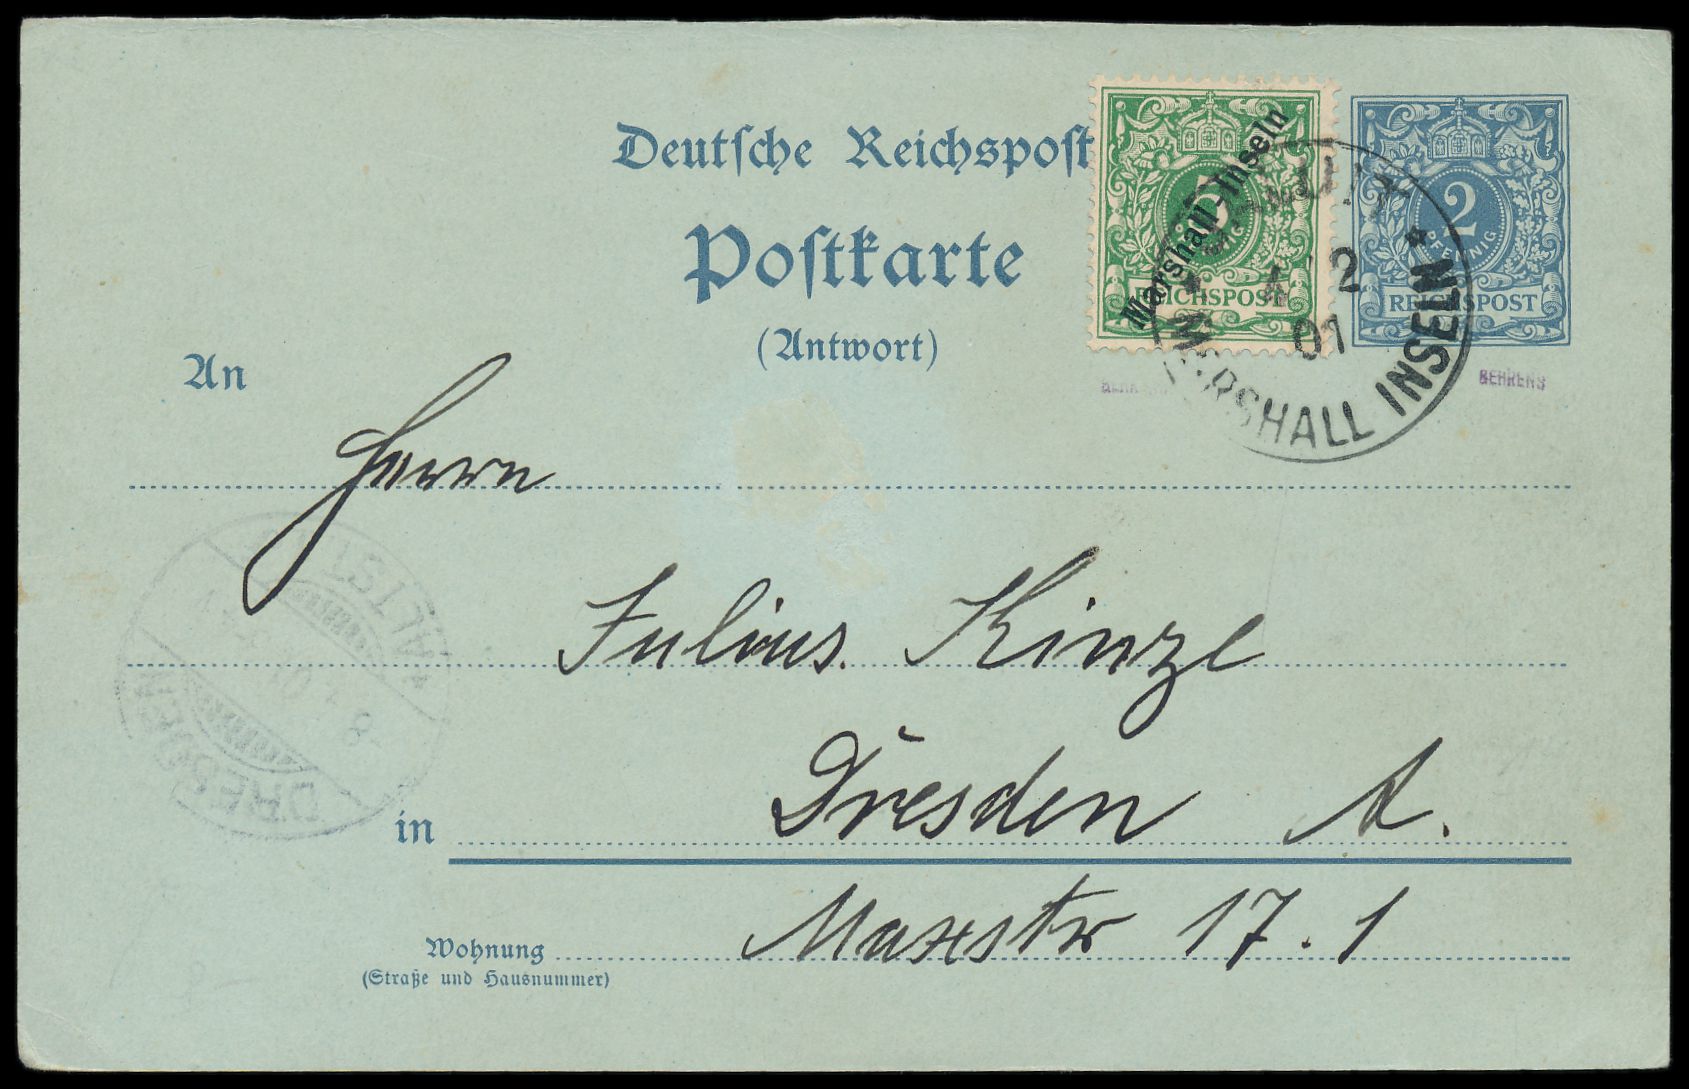 Deutsche Reichspost
Postkarte
(Antwort)
Marshall-Inseln
5
REICHSPOST
2
PFENNIG
REICHSPOST
4 12
01
MARSHALL INSELN
BEHRENS
An
Herrn
Julius. Kinze
in Dresden A.
Maxstr 17. 1
Wohnung
(Straße und Hausnummer)
ALTST.
DRESDEN